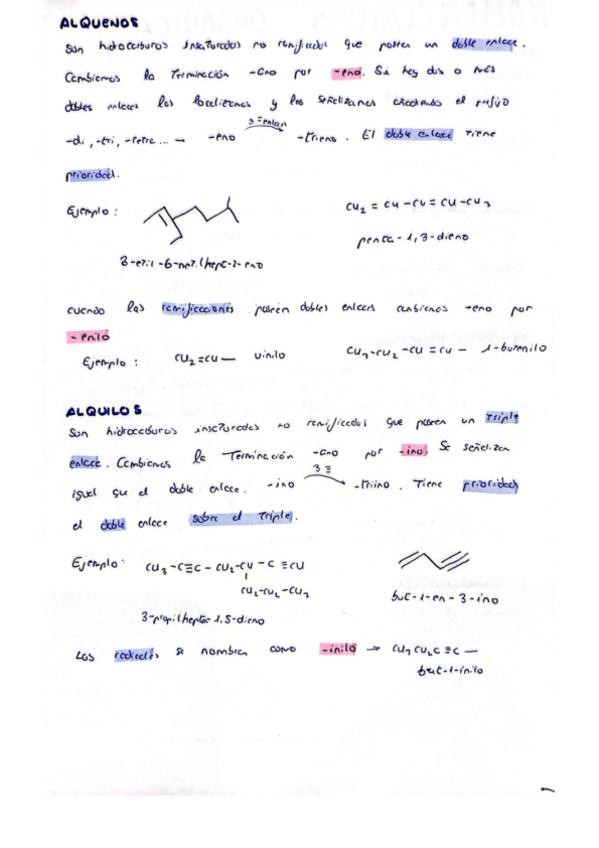 ALQUENOS
Son hidrocarburos insaturados no ramificados que poseen un doble enlace.
Cambiamos la Terminación -ano por -eno. Si hay dos o más
dobles enlaces los localizamos y los señalizamos añadiendo el prefijo
-di, -tri, -tetra... → -eno 3 = enlaces -trieno. El doble enlace tiene
prioridad.
Ejemplo:
CH₂ = CH - CH = CH - CH₃
3-etil-6-metilhept-2-eno
penta-1,3-dieno
cuando las ramificaciones poseen dobles enlaces cambiamos -eno por
-enilo
Ejemplo: CH₂=CH— vinilo CH₃-CH₂-CH=CH— 1-butenilo
ALQUILOS
Son hidrocarburos insaturados no ramificados que poseen un triple
enlace. Cambiamos la Terminación -ano por -ino. Se señalizan
igual que el doble enlace. -ino 3 ≡ -triino. Tiene prioridad
el doble enlace sobre el triple.
Ejemplo: CH₃-C≡C-CH₂-CH-C≡CH
CH₂-CH₂-CH₃
3-propilhepta-1,5-dieno
but-1-en-3-ino
Los radicales se nombran como -inilo → CH₃CH₂C≡C—
but-1-inilo